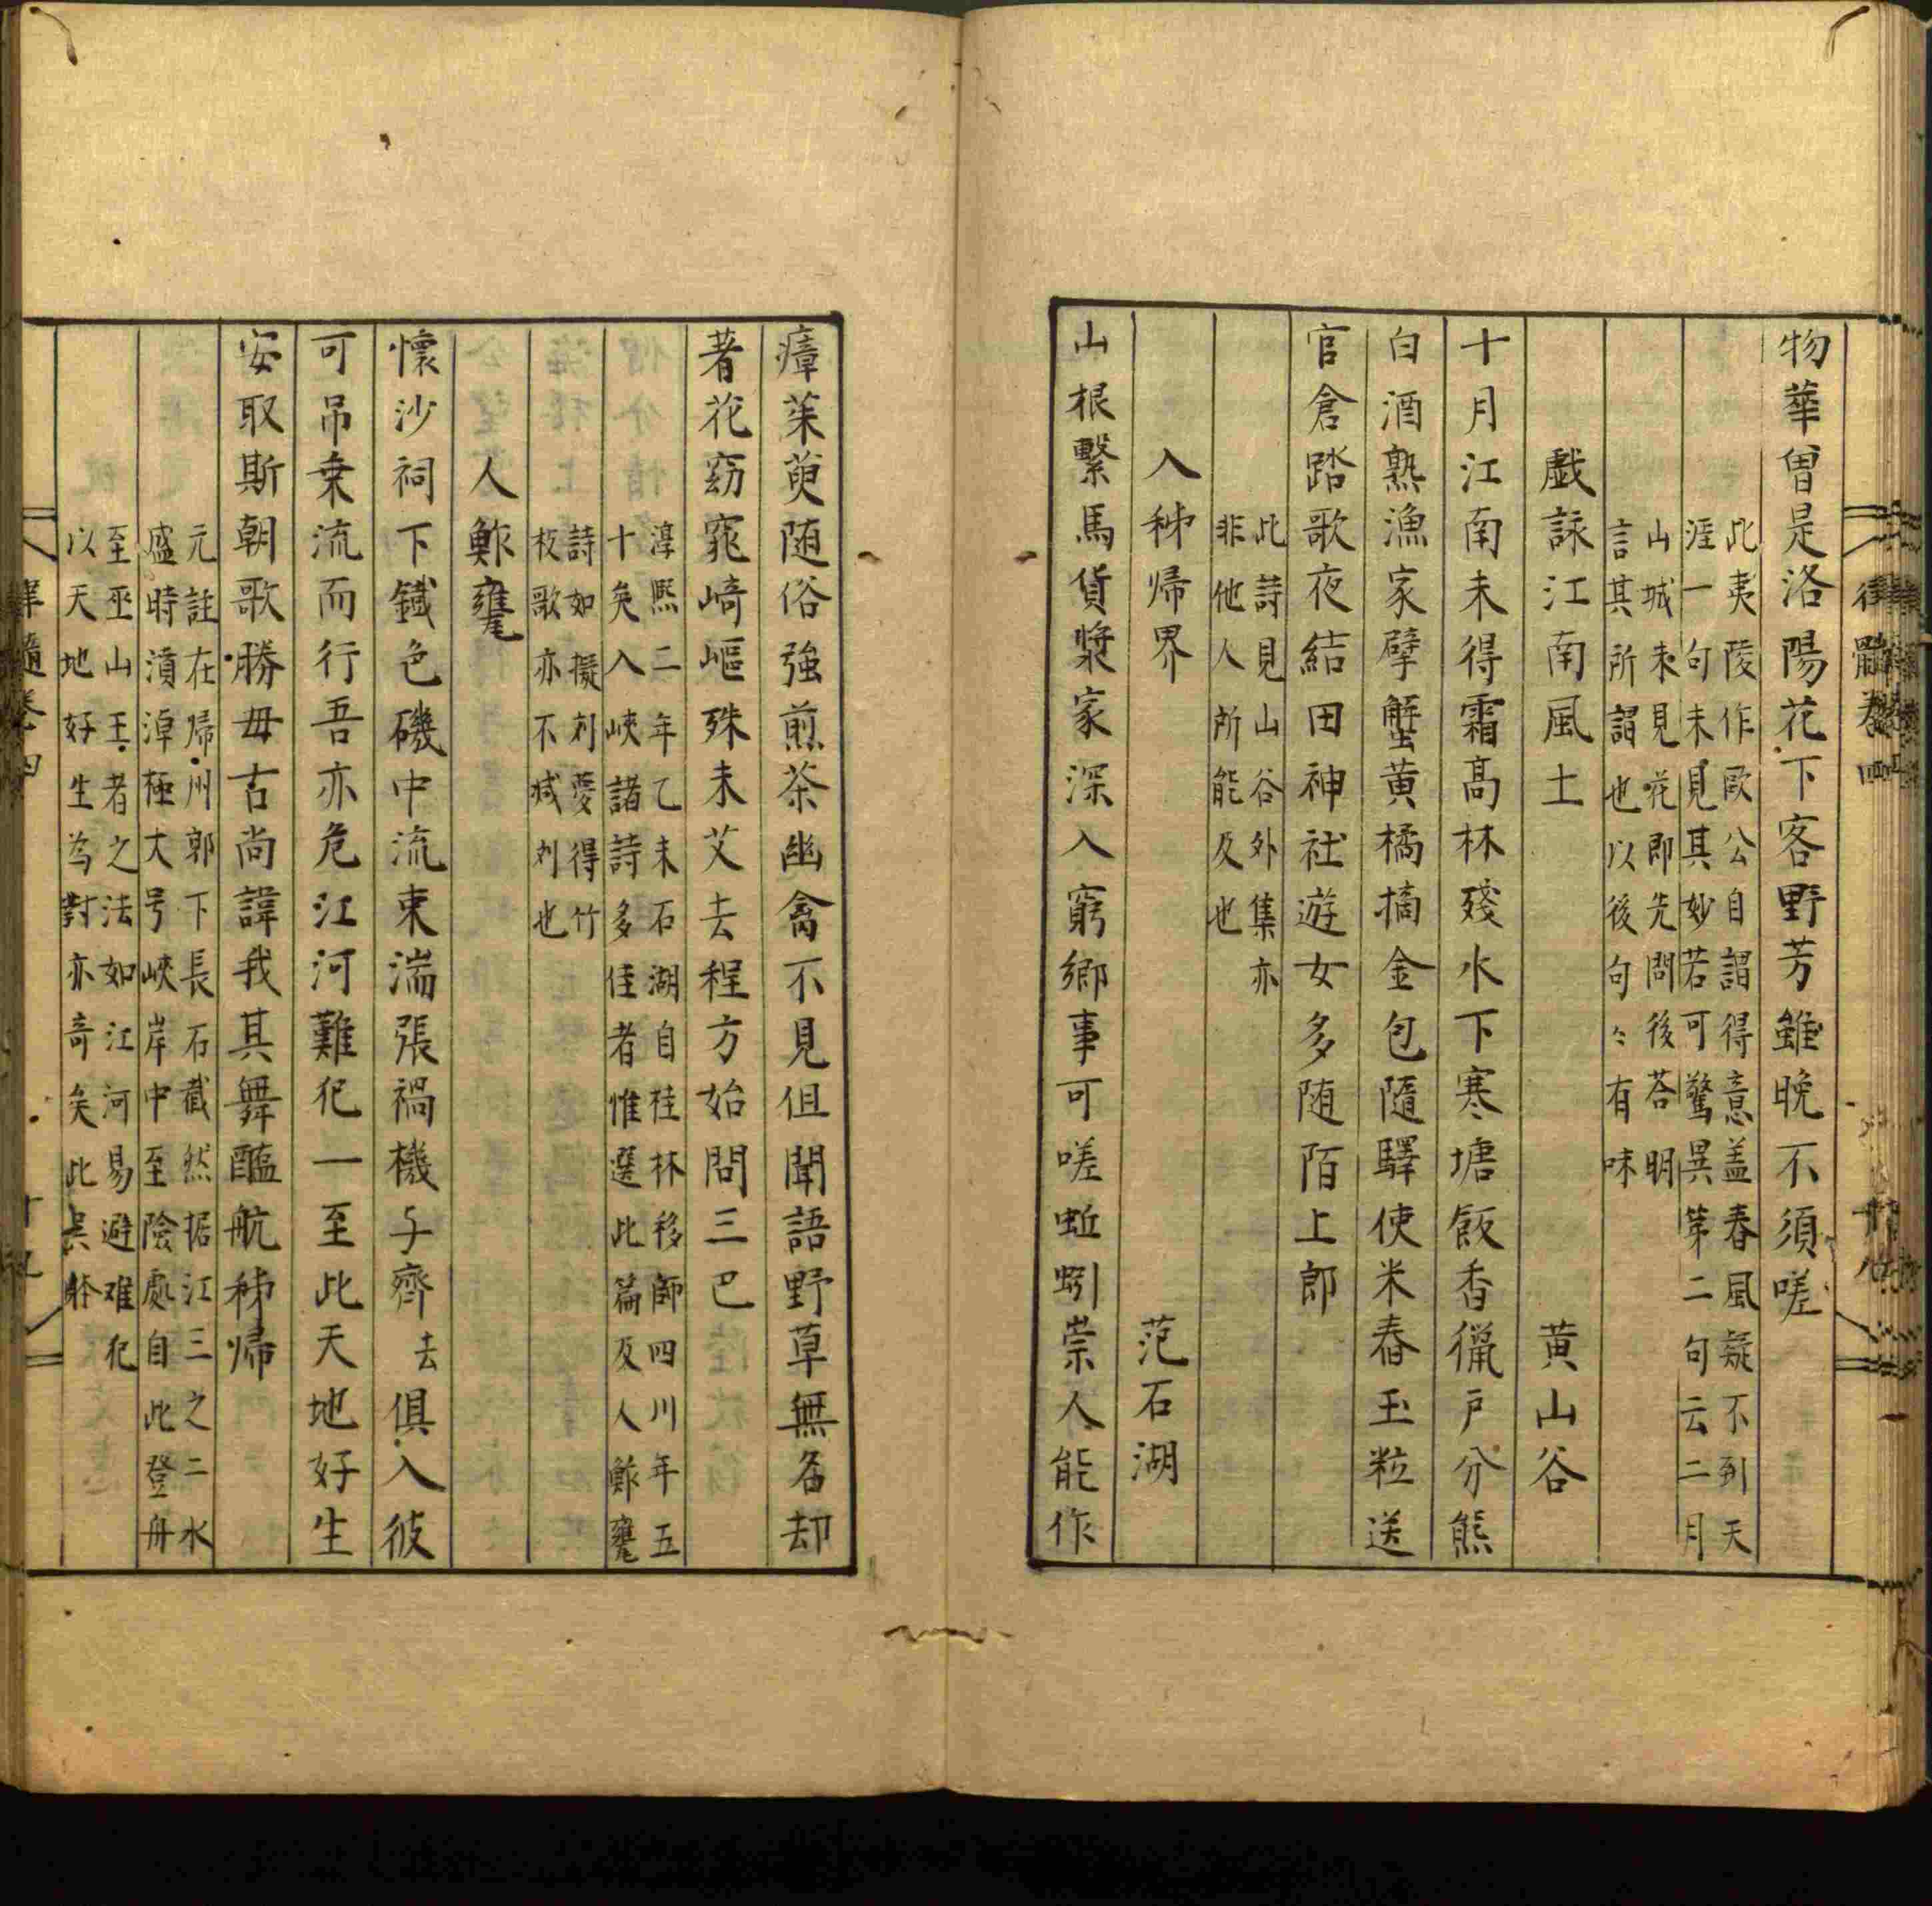 物華曽是洛陽花下客野芳雖晚不須嗟
此夷陵作歐公自謂得意盖春風疑不到天
涯一句未見其妙若可驚異第二句云二月
山城未見花即先問後荅明
言其所謂也以後句〻有味
戲詠江南風土 黄山谷
十月江南未得霜高林殘水下寒塘飯香獵戸分熊
白酒熟漁家擘蟹黄橘摘金包隨驛使米舂玉粒送
官倉踏歌夜結田神社遊女多随陌上郎
此詩見山谷外集亦
非他人所能及也
入秭帰界 范石湖
山根繫馬貨漿家深入窮郷事可嗟蚯蚓祟人能作
瘴茱萸随俗強煎茶幽禽不見但聞語野草無名却
著花窈窕崎嶇殊未艾去程方始問三巴
淳熙二年乙未石湖自桂林移師四川年五
十矣入峽諸詩多佳者惟選此篇及人鮓甕
詩如擬刘夔得竹
枝歌亦不减刘也
人鮓甕
懷沙祠下鐵色磯中流束湍張禍機予齊去俱入彼
可吊乗流而行吾亦危江河難犯一至此天地好生
安取斯朝歌勝母古尚諱我其舞醢航秭帰
元註在帰州郭下長石截然据江三之二水
盛時濆淖極大号峽岸中至險處自此登舟
至巫山王者之法如江河易避难犯
以天地好生为對亦竒矣此吴體